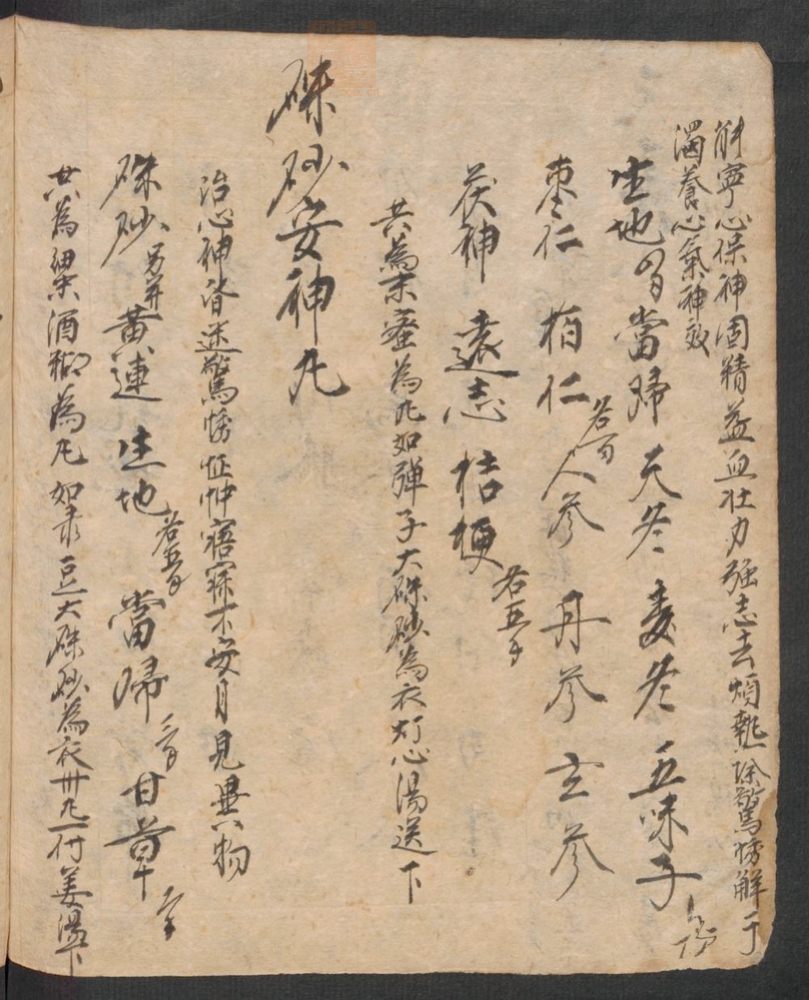 解寧心保神固精益血壯力強志去煩熱除驚悸解干
渴養心氣神效
生地 當歸 天冬 麦冬 五味子
枣仁 柏仁 各 人參 丹參 玄參
茯神 遠志 桔梗 各五
共為末蜜為丸如彈子大硃砂為衣灯心湯送下
硃砂安神丸
治心神昏迷驚悸怔忡寤寐不安目見異物
硃砂 另研 黃連 生地 各五 當歸 甘草
共為末酒糊為丸如彔豆大硃砂為衣卅丸一付姜湯下